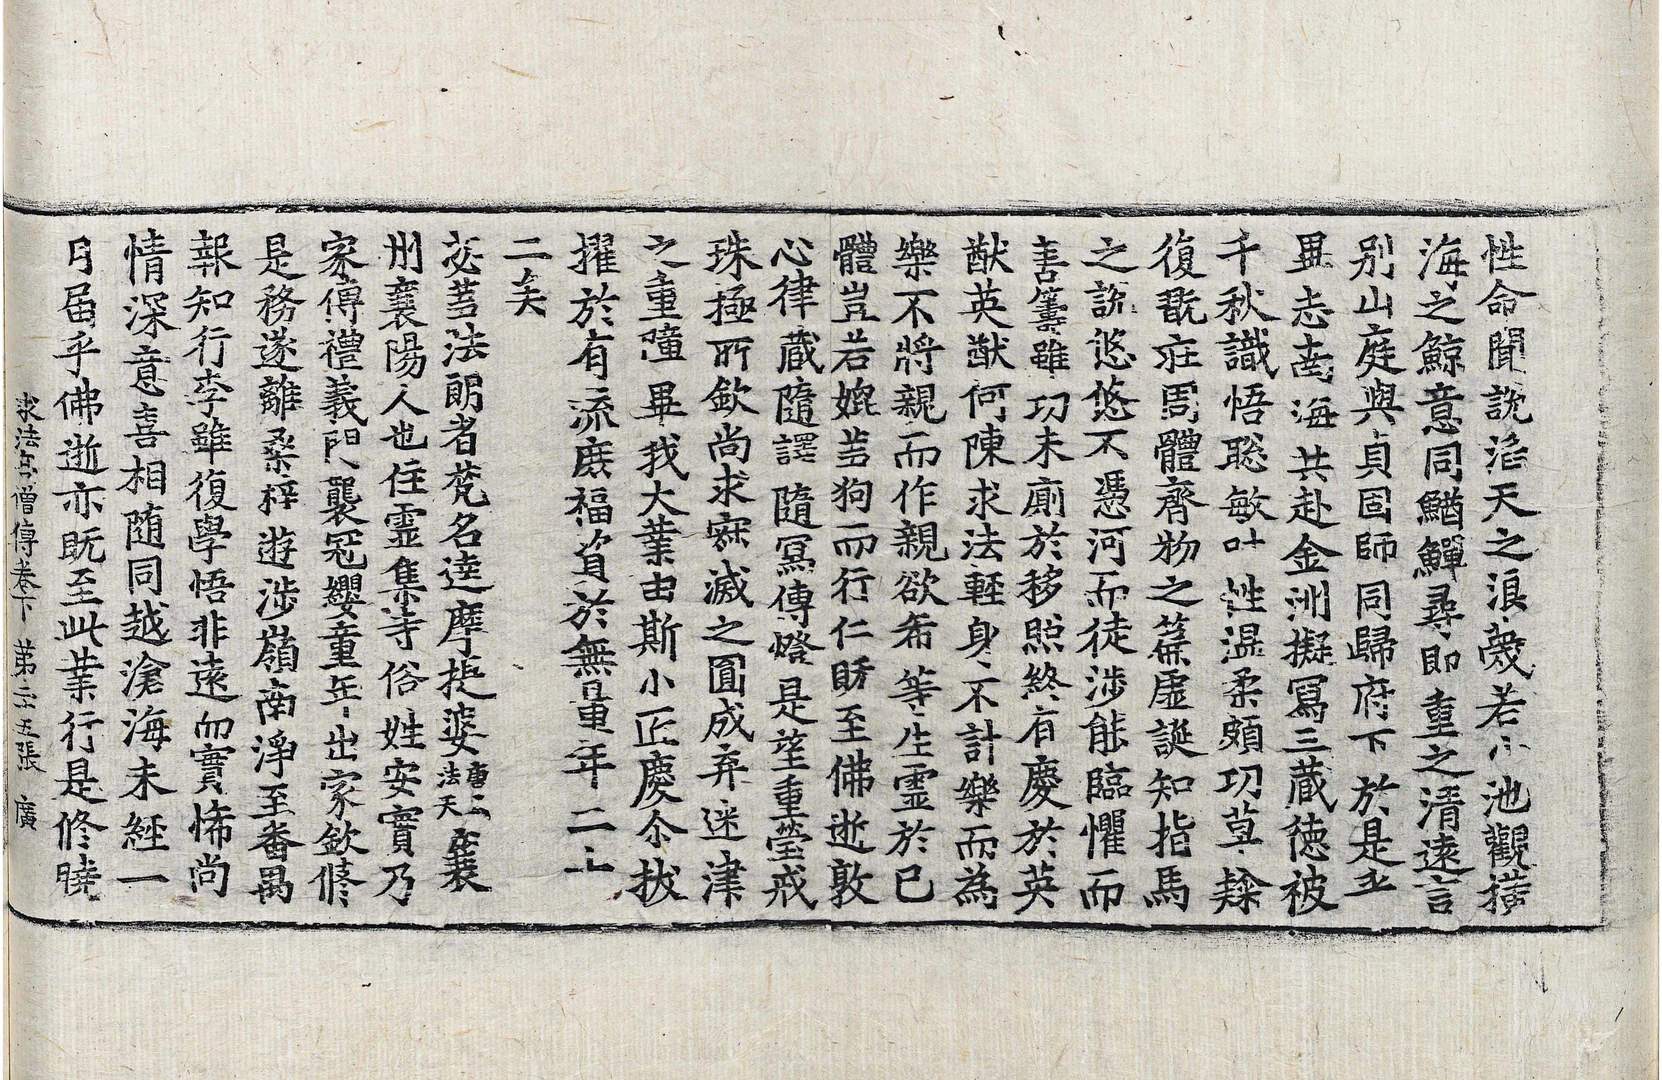 性命聞說滔天之浪蔑若小池觀撗
海之鯨意同鰌鱓尋即重之清遠言
別山庭與貞固師同歸府下於是乎
畢志南海共赴金洲擬寫三藏德被
千秋識悟聦敏叶性温柔頗功草隸
復翫莊周體齊物之篇虛誕知指馬
之說悠悠不憑河而徒涉能臨懼而
善籌雖功未廁於移照終有慶於英
猷英猷何陳求法輕身不計樂而為
樂不將親而作親欲希等生靈於已
體豈若媲芻狗而行仁旣至佛逝敦
心律藏隨譯隨寫傳燈是望重瑩戒
珠極所欽尚求寂滅之圓成弃迷津
之重曈畢我大業由斯小匠慶尒拔
擢於有流庶福資於無量年二十
二矣
苾芻法朗者梵名達摩提婆唐云法天襄
州襄陽人也住靈集寺俗姓安實乃
家傳禮義門襲冠纓童年出家欽修
是務遂離桑梓遊涉嶺南淨至番禺
報知行李雖復學悟非遠而實怖尚
情深意喜相隨同越滄海未經一
月届乎佛逝亦旣至此業行是修曉
求法高僧傳卷下 第二十五張 廣